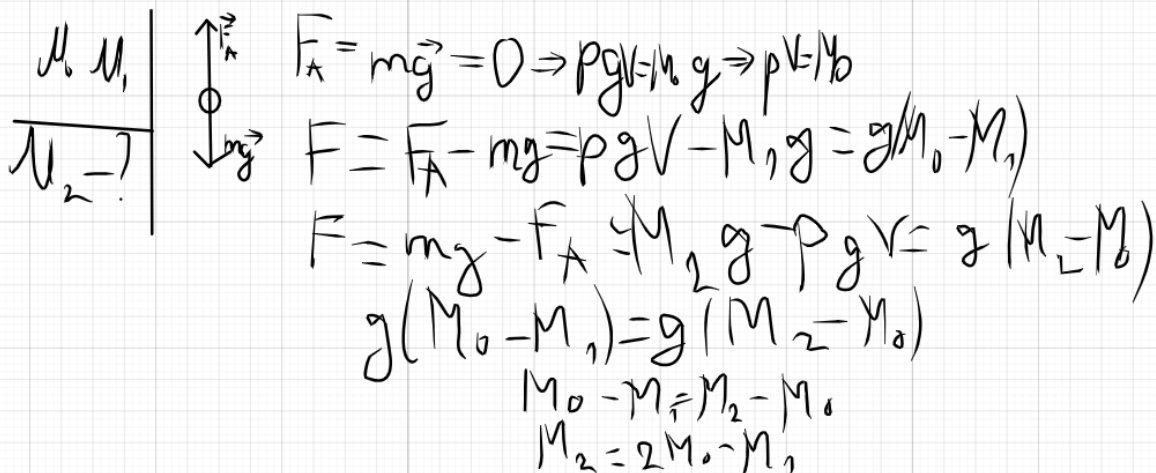 M₀ M₁
M₂ - ?
F⃗_A
mg⃗
F_A = mg⃗ = 0 ⇒ ρgV = M₀g ⇒ ρV = M₀
F = F_A - mg = ρgV - M₁g = g(M₀ - M₁)
F = mg - F_A = M₂g - ρgV = g(M₂ - M₀)
g(M₀ - M₁) = g(M₂ - M₀)
M₀ - M₁ = M₂ - M₀
M₂ = 2M₀ - M₁